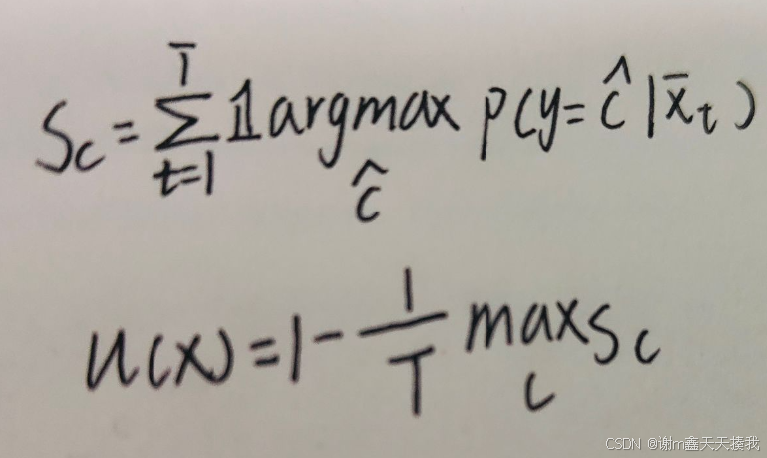 S_c = \sum_{t=1}^{T} 𝟙 argmax_{\hat{c}} p(y = \hat{c} | \bar{x}_t)
u(x) = 1 - \frac{1}{T} max_{c} S_c
CSDN @谢m鑫天天揍我